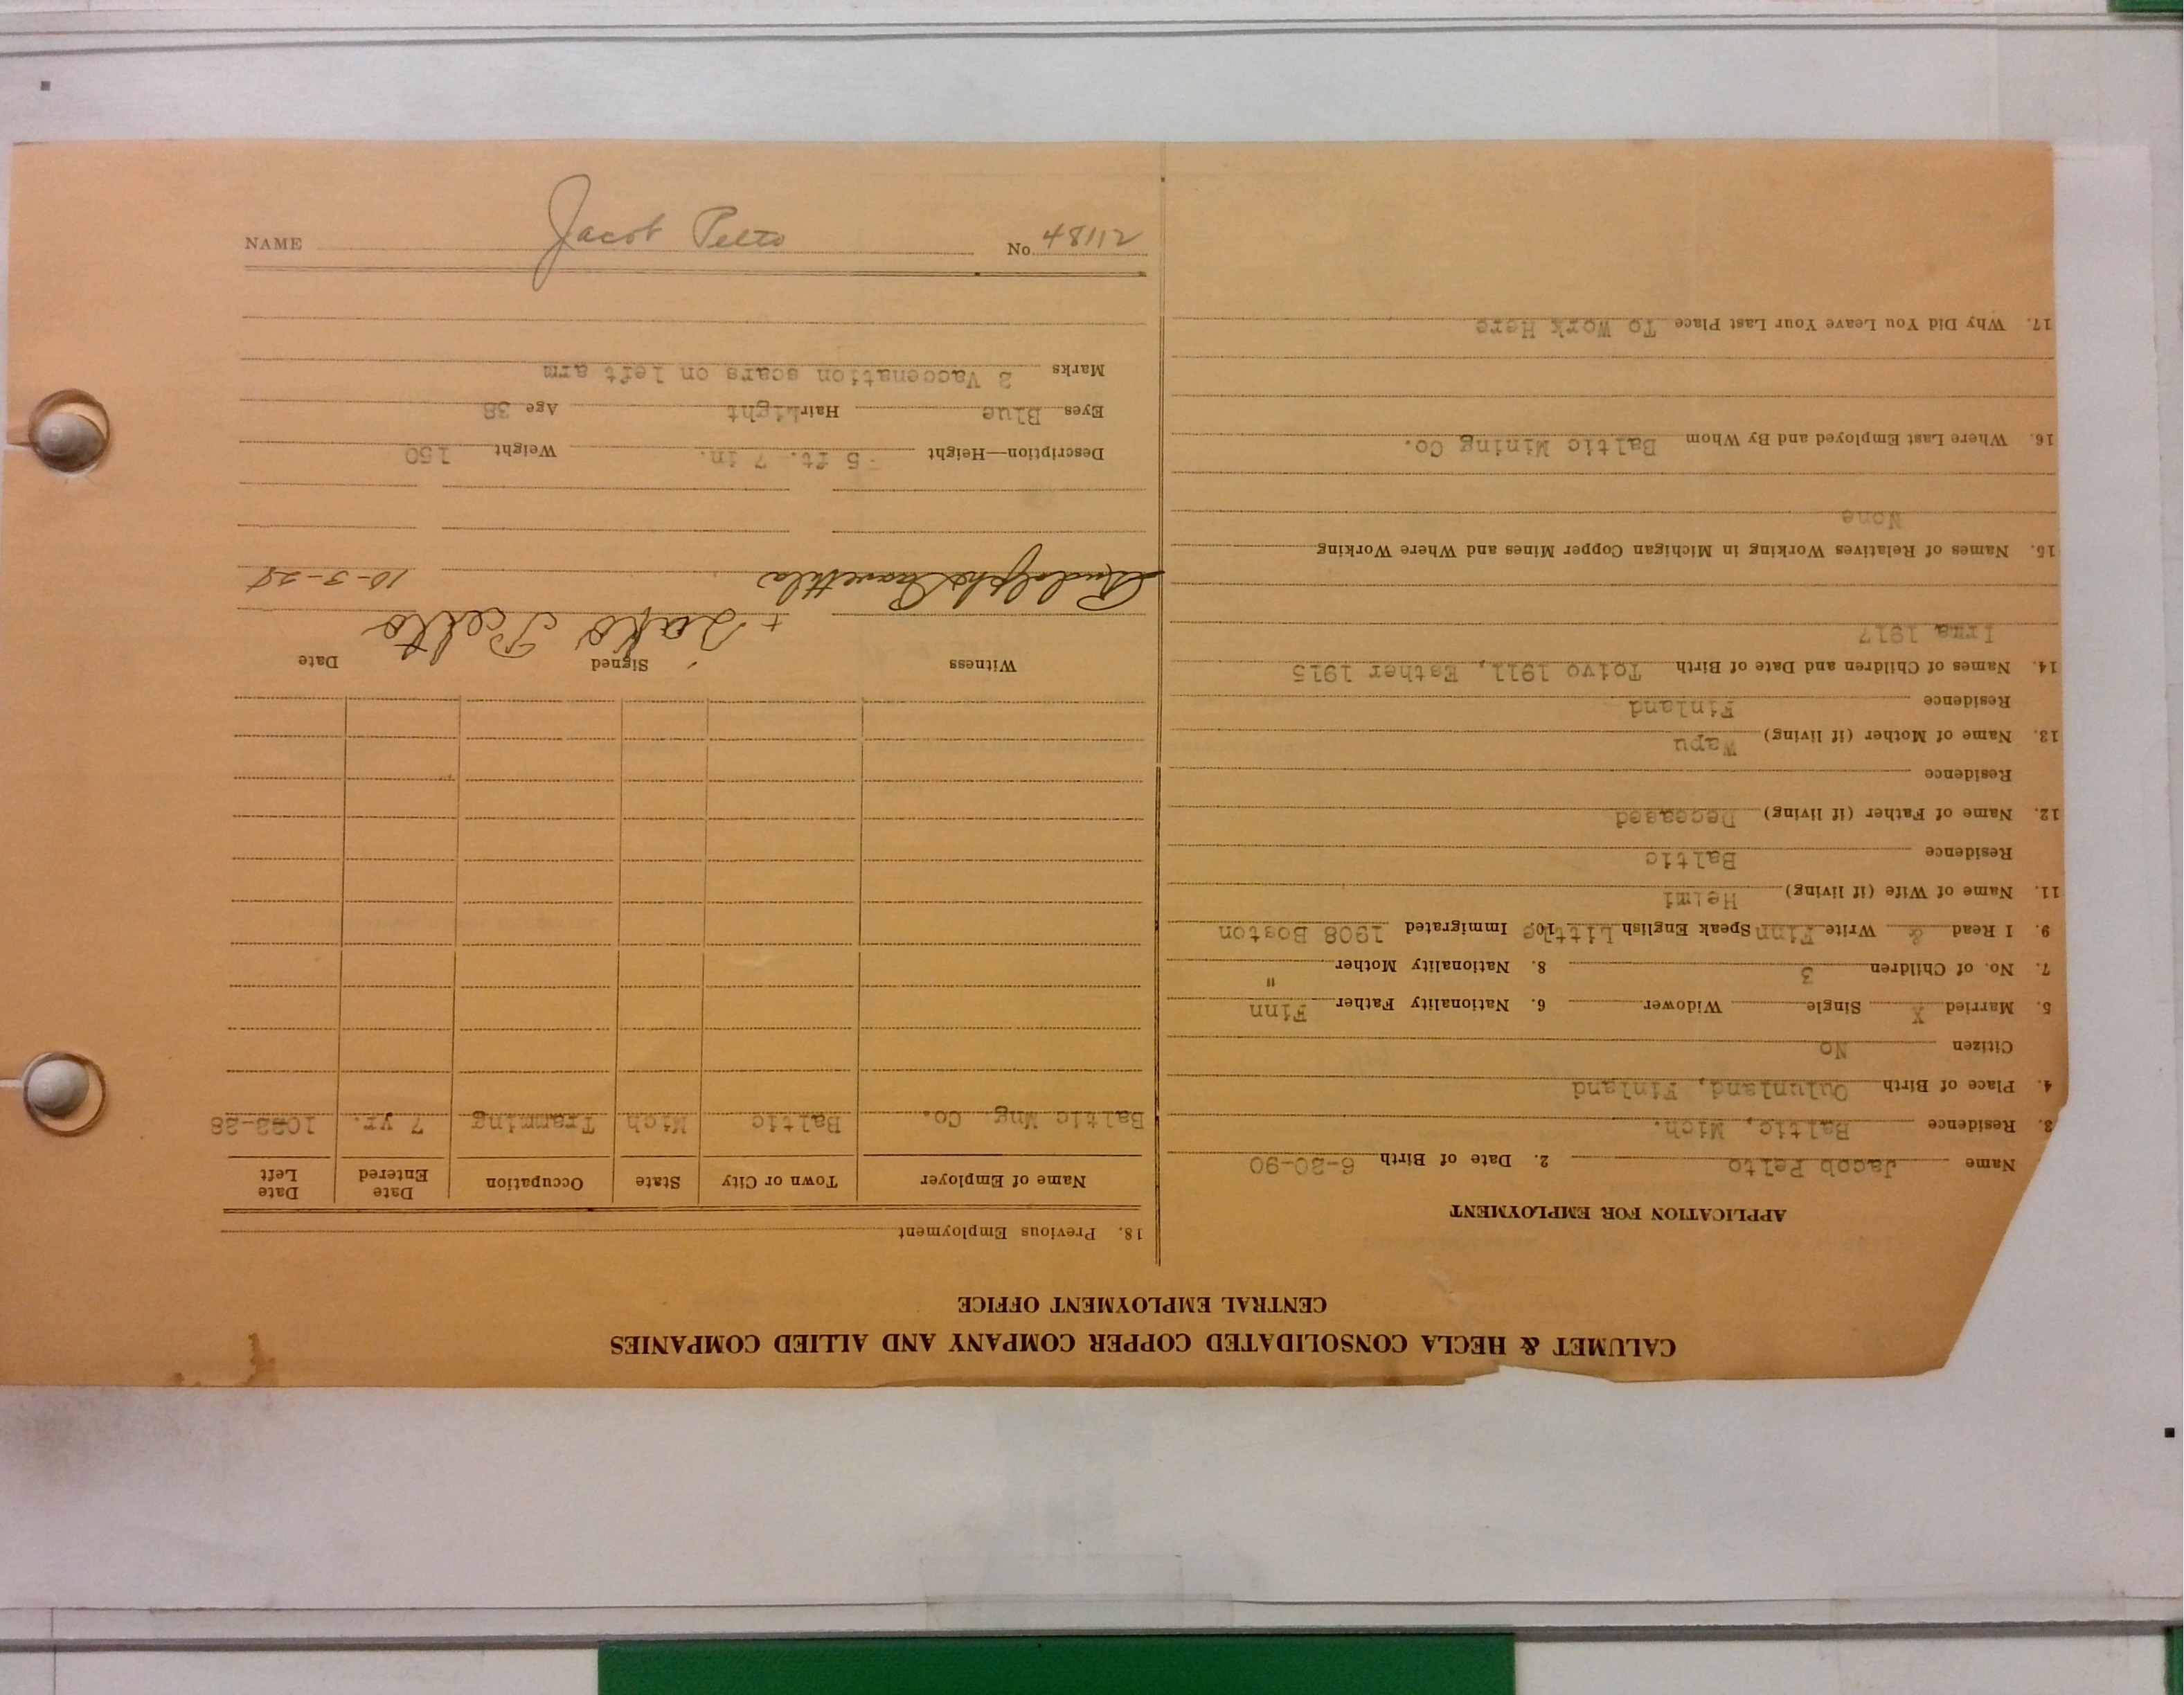 CALUMET & HECLA CONSOLIDATED COPPER COMPANY AND ALLIED COMPANIES
CENTRAL EMPLOYMENT OFFICE
APPLICATION FOR EMPLOYMENT
Name Jacob Pelto 2. Date of Birth 6-20-90
3. Residence Baltic, Mich.
4. Place of Birth Oulunland, Finland
Citizen No
5. Married X Single Widower 6. Nationality Father Finn
7. No. of Children 3 8. Nationality Mother "
9. I Read & Write Finn Speak English Little 10. Immigrated 1908 Boston
11. Name of Wife (if living) Helmi
Residence Baltic
12. Name of Father (if living) Deceased
Residence
13. Name of Mother (if living) Wapu
Residence Finland
14. Names of Children and Date of Birth Toivo 1911, Esther 1915
Irma 1917
15. Names of Relatives Working in Michigan Copper Mines and Where Working
None
16. Where Last Employed and By Whom Baltic Mining Co.
17. Why Did You Leave Your Last Place To Work Here
18. Previous Employment
Name of Employer Town or City State Occupation Date Entered Date Left
Baltic Mng. Co. Baltic Mich Tramming 7 yr.
Witness Signed Date
+ Jako Pelto
Rudolph 10-3-28
Description—Height 5 ft. 7 in. Weight 150
Eyes Blue Hair Light Age 38
Marks Vaccenation scars on left arm
NAME Jacob Pelto No. 48112